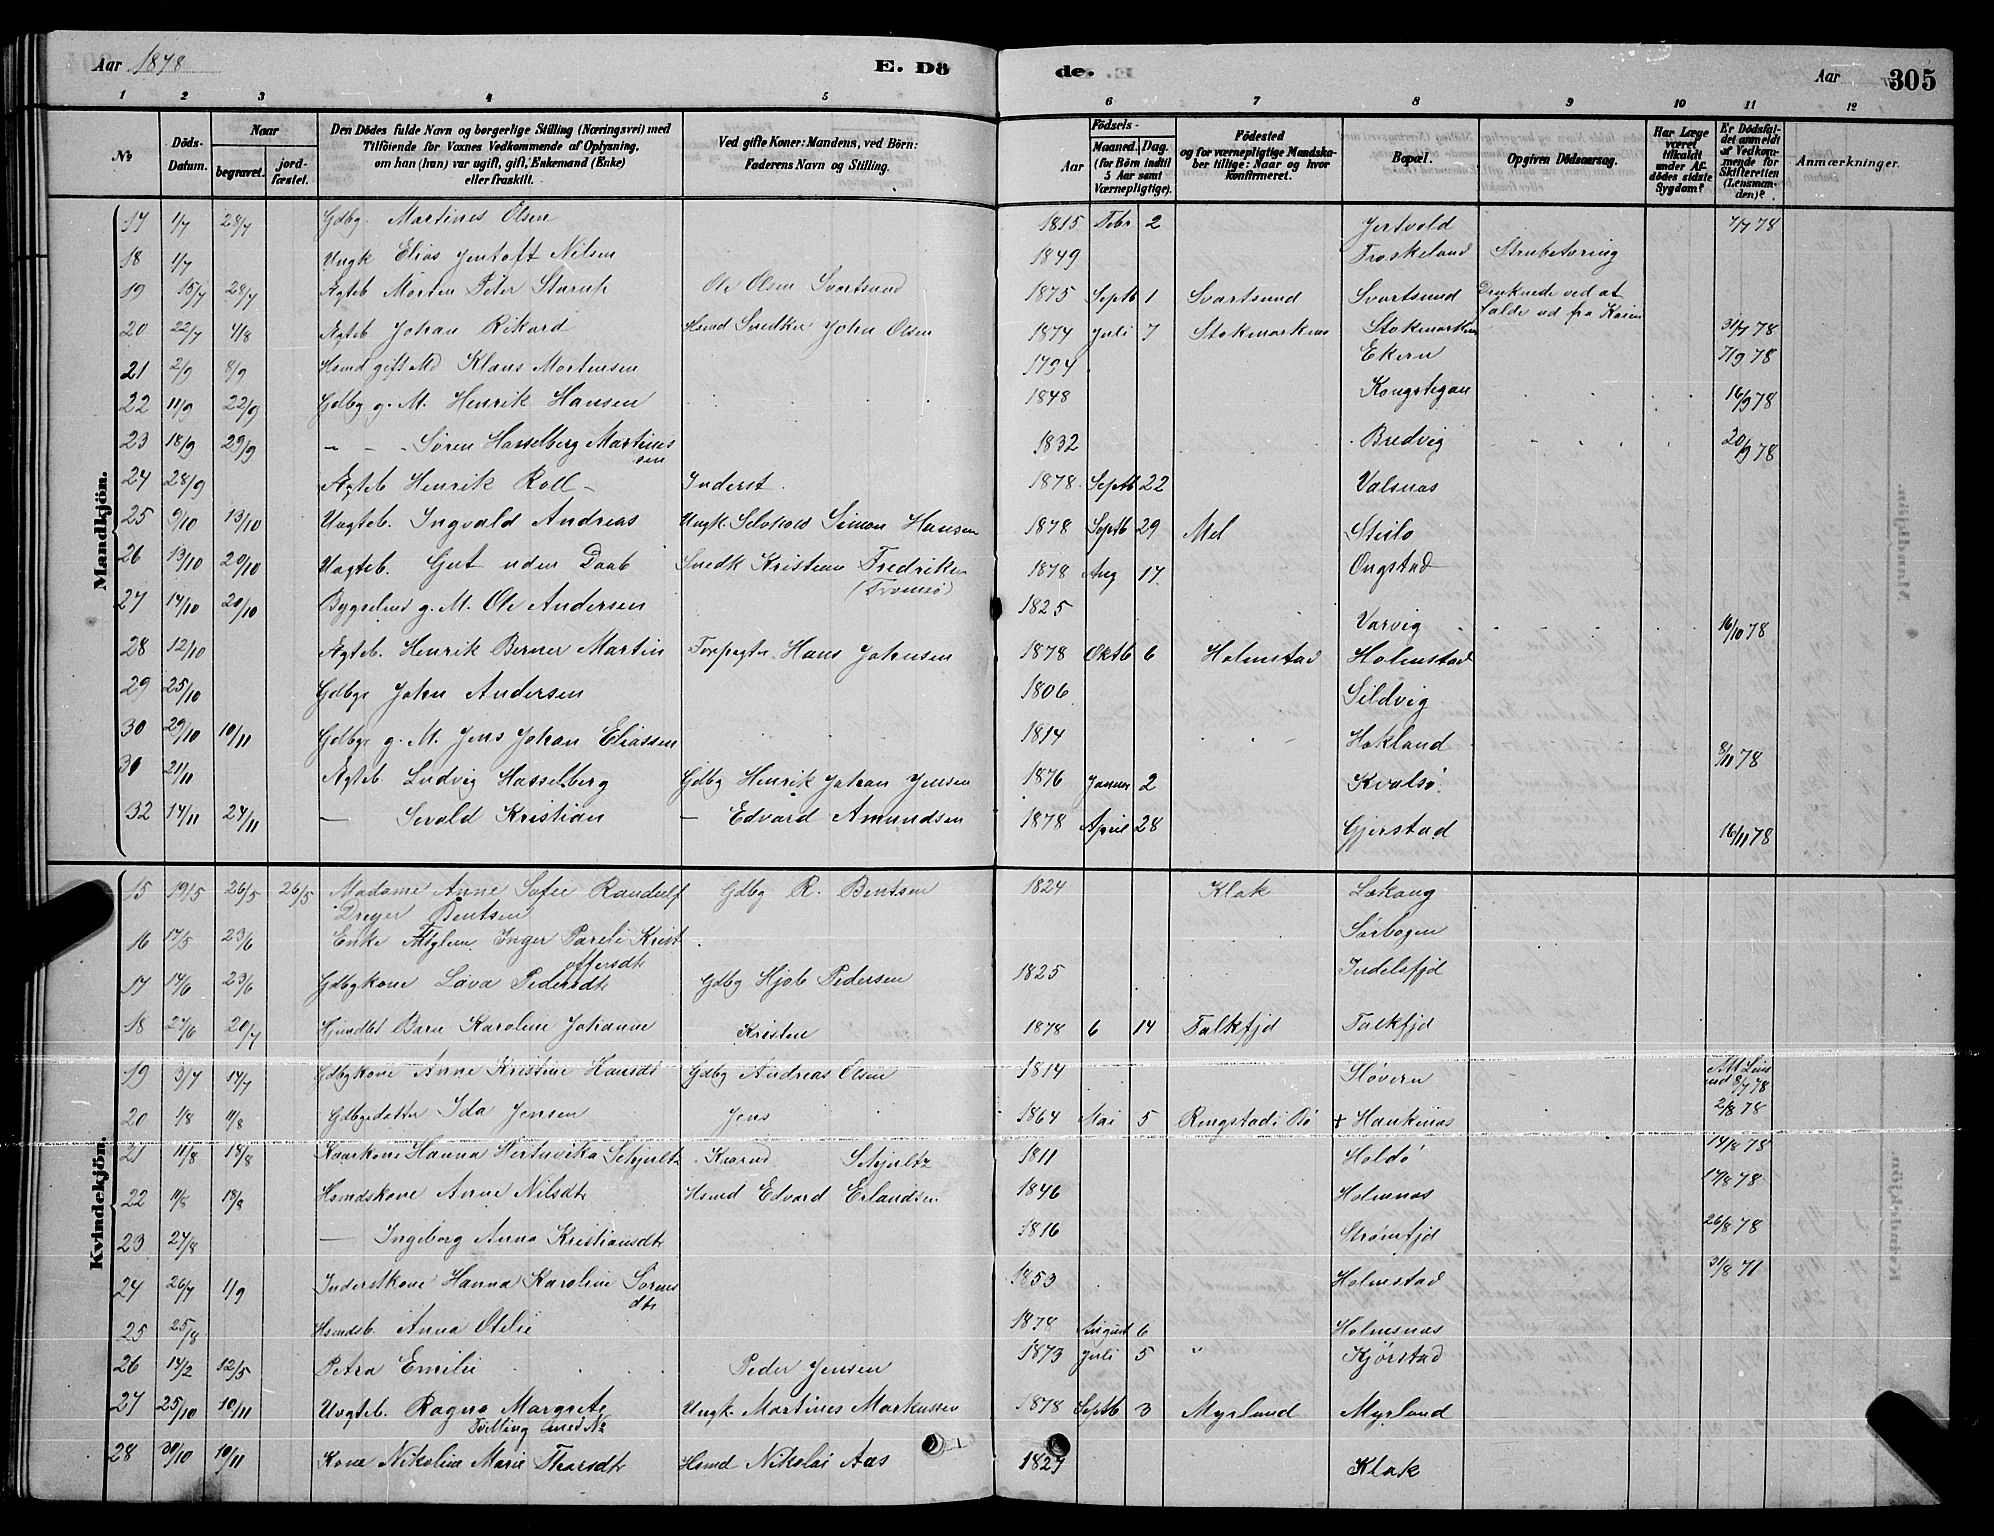 Aar 1878 E. Dö de. Aar 305
1 2 3 4 5 6 7 8 9 10 11 12
No. Döds-Datum. Naar begravet. jord-fæstet. Den Dödes fulde Navn og borgerlige Stilling (Næringsvei) med Tilföiende for Voxnes Vedkommende af Oplysning, om han (hun) var ugift, gift, Enkemand (Enke) eller fraskilt. Ved gifte Koner: Mandens, ved Börn: Faderens Navn og Stilling. Födsels- Aar Maaned. Dag. (for Börn indtil 5 Aar samt Værnepligtige). Födested og for værnepligtige Mandskaber tillige: Naar og hvor konfirmeret. Bopæl. Opgiven Dödsaarsag. Har Læge været tilkaldt under Afdödes sidste Sygdom? Er Dödsfaldet anmeldt af Vedkommende for Skifteretten (Lensmanden)? Anmærkninger.
Mandkjön.
17 1/7 28/7 Gdbg. Martines Olsen 1815 Febr 2 Jertvold 7/7 78
18 1/7 Ungk Elias Jentoft Nilsen 1849 Froskeland Strubetæring
19 15/7 28/7 Ægteb Morten Peter Storup Ole Olsen Svartsund 1875 Septb 1 Svartsund Svartsund Druknede ved at falde ud fra Kaien
20 22/7 4/8 Ægteb Johan Rikard Hsmd Snedker John Olsen 1874 Juli 7 Stokmarknes Stokmarknes 31/7 78
21 2/9 8/9 Hsmd gift Md Klaus Mortensen 1794 Ekern 7/9 78
22 11/9 22/9 Gdbg g. M. Henrik Hansen 1848 Kongstegan 16/9 78
23 18/9 29/9 - - - Søren Hasselberg Martinussen 1832 Bredvig 20/9 78
24 28/9 Ægteb Henrik Roll - Inderst. 1878 Septb 22 Valsnæs
25 9/10 13/10 Uægteb. Ingvald Andreas Ungk. Selvhold Simon Hansen 1878 Septb 29 Mel Steilo
26 13/10 20/10 Uægteb. Gut uden Daab Snedk Kristian Fredriksen (Tromsø) 1878 Aug 17 Ongstad
27 14/10 20/10 Bygselmd g. M. Ole Andersen 1825 Varvig 16/10 78
28 12/10 Ægteb. Henrik Berner Martin Forpagter Hans Johnsen 1878 Oktb 6 Holmstad Holmstad
29 25/10 Gdbgr John Andersen 1806 Sildvig
30 29/10 10/11 Gdbgr g. M. Jens Johan Eliassen 1814 Hokland 8/11 78
31 21/11 Ægteb Ludvig Hasselberg Gdbg Henrik Johan Jensen 1876 Januar 2 Kvalsø
32 14/11 24/11 — Sevald Kristian — Edvard Amundsen 1878 April 28 Gjerstad 16/11 78
Kvindekjön.
15 19/5 26/5 26/5 Madame Anne Sofie Randulf Dreyer Bentsen Gdbg R. Bentsen 1824 Klak Lekang
16 17/5 23/6 Enke Inger Pareli Kristoffersdtr Sørbogen
17 14/6 23/6 Gdbgkone Lava Pedersdtr Gdbg Hjob Pedersen 1825 Indelsfjd
18 27/6 20/7 Hjemdbt Barn Karoline Johanne Kristen 1878 6 14 Falkfjd Falkfjd
19 3/7 14/7 Gdbgkone Anne Kristine Hansdt Gdbg Andreas Olsen 1814 Høvern 8/7 78
20 1/8 11/8 Gdbgdatter Ida Jensen Jens 1864 Mai 5 Ringstad i Bø + Hauknæs 2/8 78
21 11/8 18/8 Kaarkone Hanna Hertuvika Schjultz Kaarmd Schjultz 1811 Holdø 14/8 78
22 11/8 18/8 Hsmdskone Anne Nilsdtr Hsmd Edvard Erlandsen 1846 Holmnæs 17/8 78
23 27/8 — Ingeborg Anna Kristiansdtr 1816 Strømfjd 26/8 78
24 26/7 1/9 Inderstkone Hanna Karoline Sørensdtr 1853 Holmstad 31/8 71
25 25/8 Hsmdsb. Anna Otelie 1878 August 6 Holmsnæs
26 14/2 12/5 Petra Emilie Peder Jensen 1873 Juli 5 " Kjørstad
27 25/10 10/11 Uægteb. Ragna Margrete Tvilling med No Ungk. Martines Markussen 1878 Septb 3 Myrland Myrland
28 30/10 10/11 Kone Nikoline Marie Thorsdtr Hsmd Nikolai Aas 1829 Klak